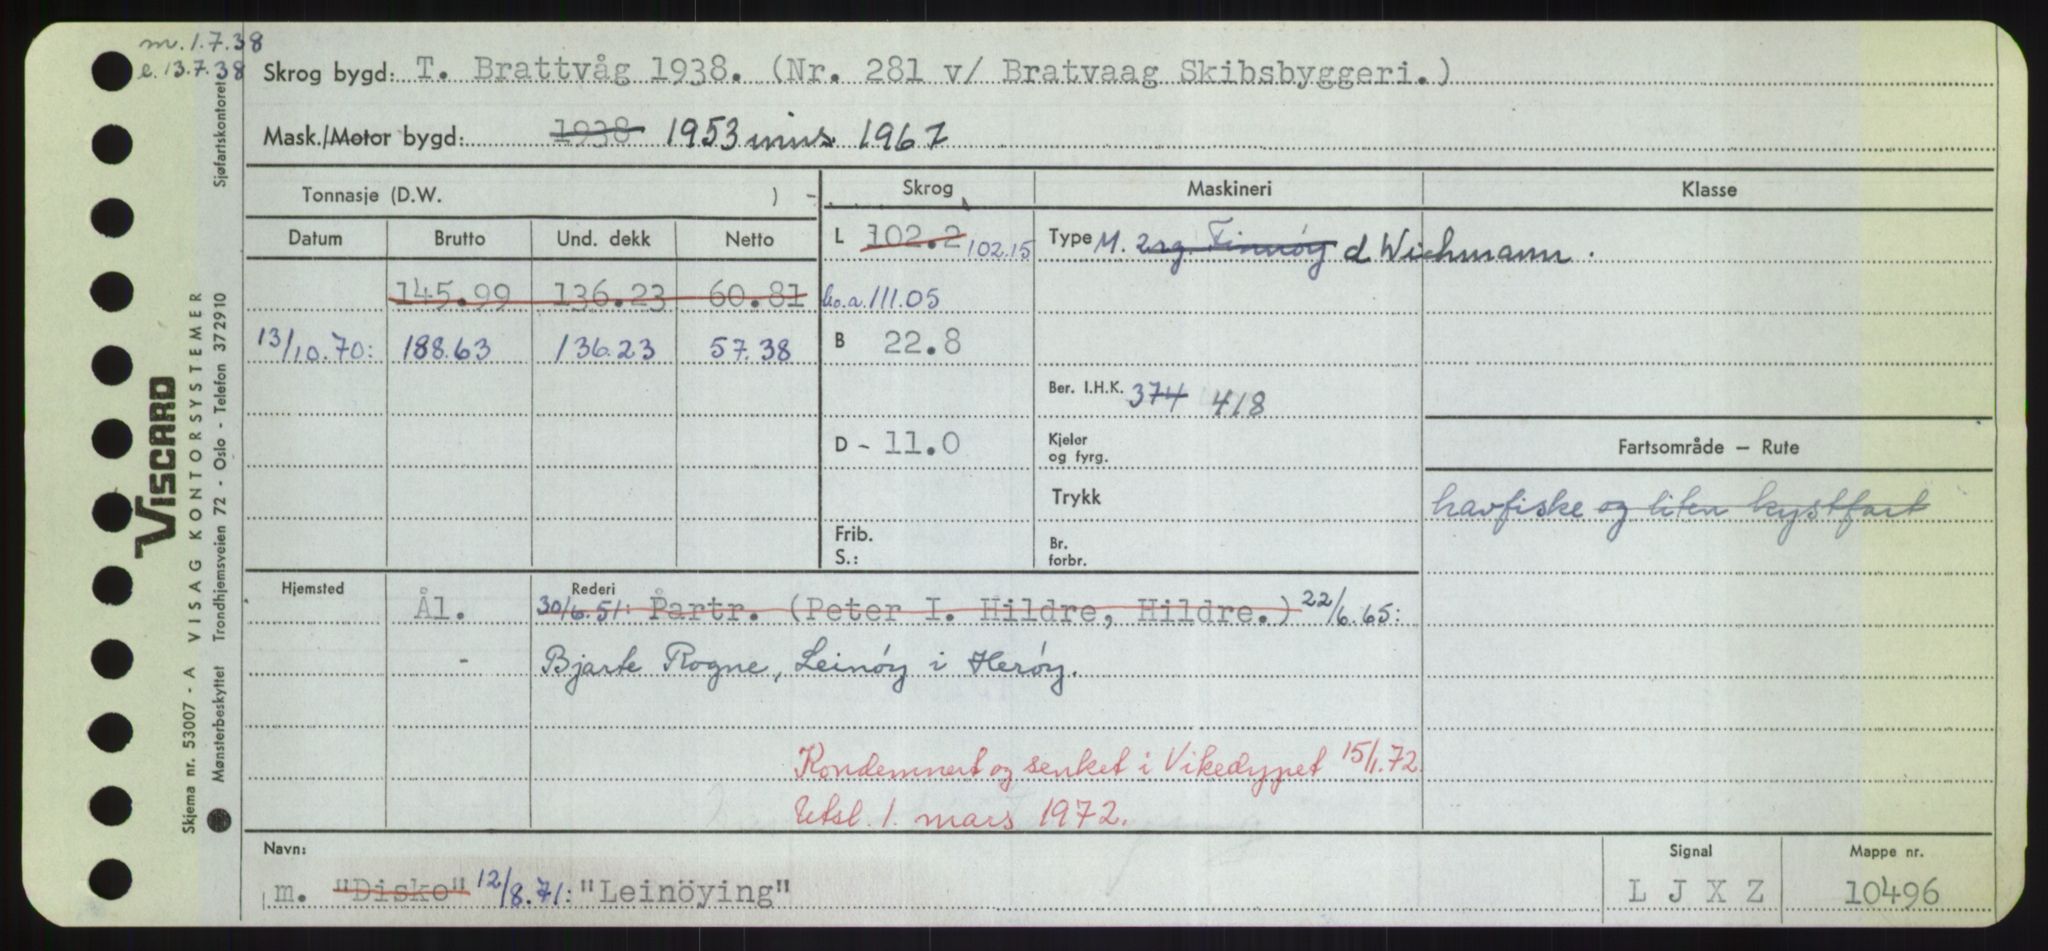 m. 1.7.38
e. 13.7.38
Skrog bygd: T. Brattvåg 1938. (Nr. 281 v/ Bratvaag Skibsbyggeri.)
Mask./Motor bygd: 1938 1953 inns. 1967
Tonnasje (D.W. ) -
Skrog Maskineri Klasse
Datum Brutto Und. dekk Netto
L 102.2 102.15
Type M. 2sg. Finnöy d Wichmann.
145.99 136.23 60.81
l.o.a. 111.05
13/10.70: 188.63 136.23 57.38
B 22.8
Ber. I.H.K. 374 418
D - 11.0
Kjeler
og fyrg.
Fartsområde — Rute
Trykk
havfiske og liten kystfart
Frib.
S.:
Br.
forbr.
Hjemsted Rederi
Ål. 30/6.51: Partr. (Peter I. Hildre, Hildre.) 22/6.65:
- Bjarte Rogne, Leinöy i Heröy.
Kondemnert og senket i Vikedypet 15/1.72.
Utsl. 1. mars 1972.
Navn: Signal Mappe nr.
m. "Disko" 12/8.71: "Leinöying" L J X Z 10496
VISCARD
Skjema nr. 53007 - A VISAG KONTORSYSTEMER
Mønsterbeskyttet Trondhjemsveien 72 - Oslo - Telefon 372910 Sjøfartskontoret